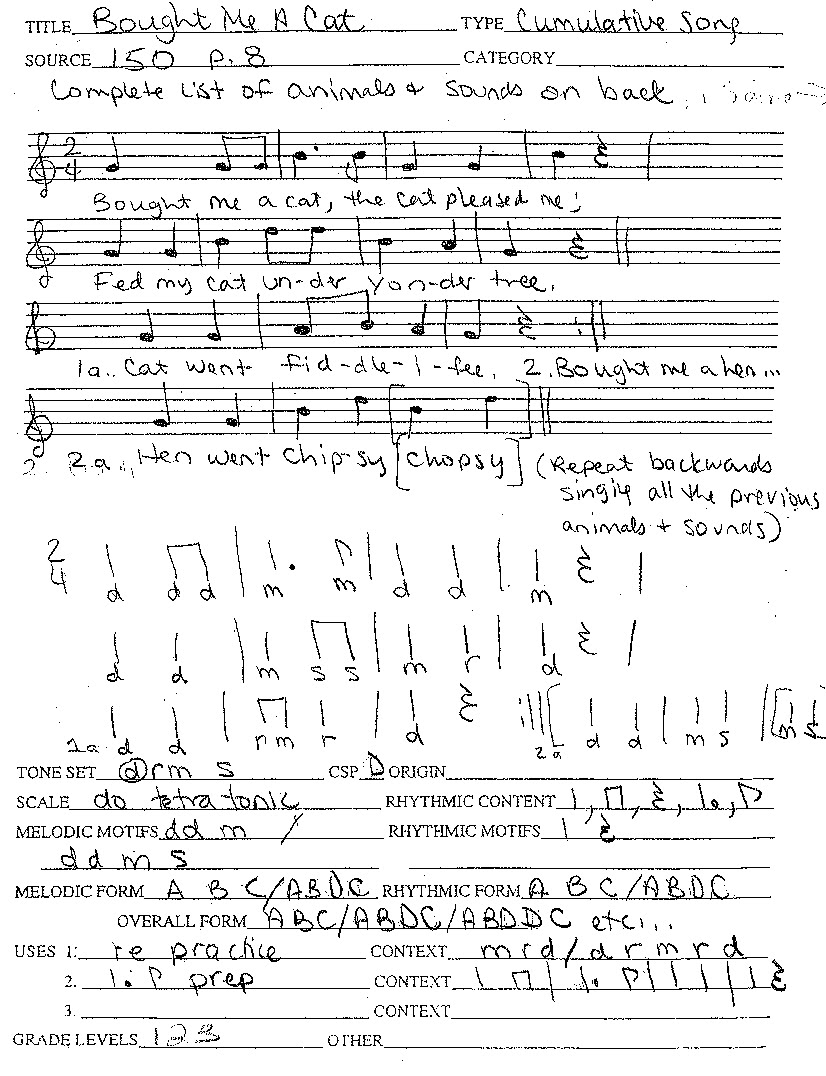 TITLE Bought Me A Cat TYPE Cumulative Song
SOURCE 150 p.8 CATEGORY
Complete List of animals + sounds on back
2 4
Bought me a cat, the cat pleased me;
Fed my cat un-der yon-der tree.
1a. Cat went fid-dle-i-fee. 2. Bought me a hen...
2a. Hen went chip-sy [chopsy] (Repeat backwards
singig all the previous
animals + sounds)
2 4 d d d | m. m | d d | m
d d | m s s | m r | d
1a d d | r m r | d 2a d d | m s | [m s
TONE SET d r m s CSP D ORIGIN
SCALE do tetratonic RHYTHMIC CONTENT
MELODIC MOTIFS d d m / RHYTHMIC MOTIFS
d d m s
MELODIC FORM A B C/ABDC RHYTHMIC FORM A B C/ABDC
OVERALL FORM ABC/ABDC/ABDDC etc...
USES 1: re practice CONTEXT m r d/d r m r d
2. prep CONTEXT
3. CONTEXT
GRADE LEVELS 1 2 3 OTHER